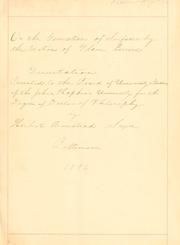 On the Generation of Surfaces by
the Motion of Plane Curves
Dissertation
Presented to the Board of University Studies
of the Johns Hopkins University for the
Degree of Doctor of Philosophy
by
Herbert Armistead Sayre
Baltimore
1896